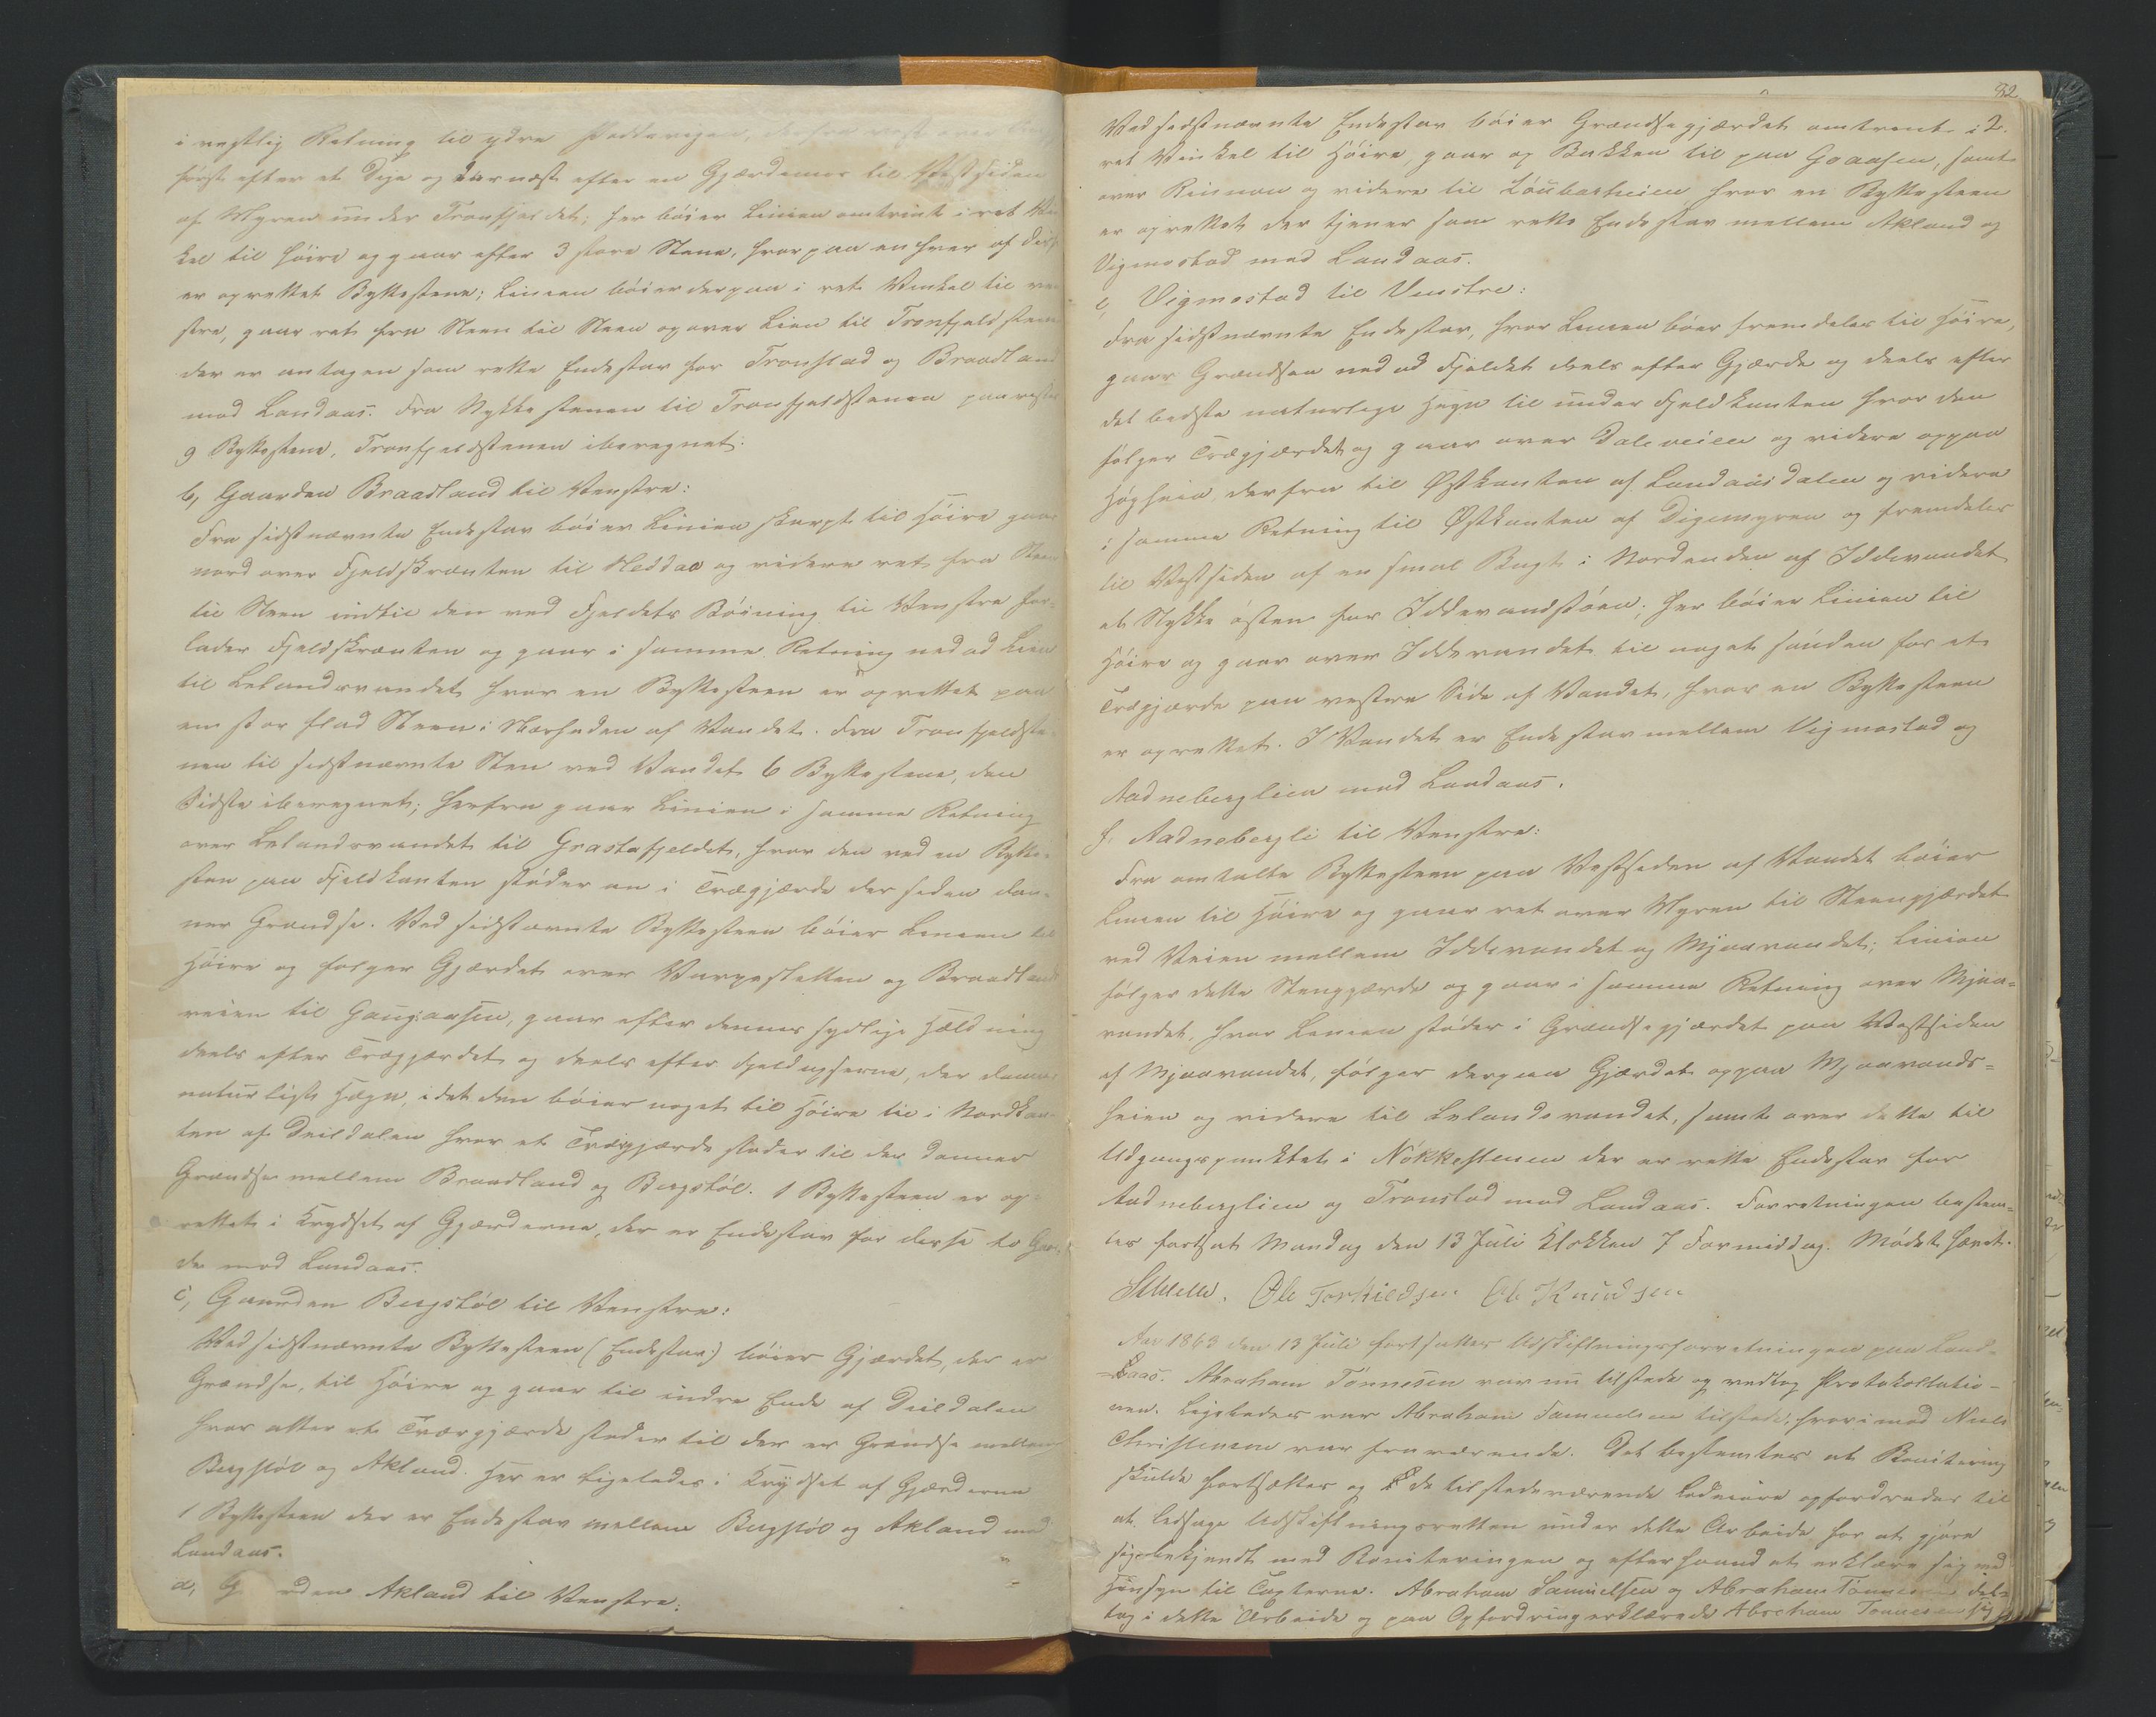 i vestlig Retning til ydre
først efter et Dige og dernæst efter en Gjærdemor til Vestsiden
af Myren under Tronfjeldet; her bøier Linien omtrint i ret Vin
kel til høire og gaar efter 3 store Stene, hvorpaa en hver af disse
er oprettet Byttestene; Linien bøier derpaa i ret Vinkel til ven
stre, gaar ret fra Steen til Steen op over Lien til Tronfjeldstenen
der er antagen som rette Endestav for Tronstad og Braadland
mod Landaas. Fra Nykkestenen til Tronfjeldstenen
9 Byttestene, Tronfjeldstenen iberegnet.
b, Gaarden Braadland til Venstre:
Fra sidstnævnte Endestav bøier Linien skarpt til Høire gaar
nord over Fjeldskrænten til Heddao og videre ret fra Steen
til Steen indtil den ved Fjeldets Bøining til Venstre for-
lader Fjeldskrænten og gaar i samme Retning ned ad Lien
til Lelandsvandet hvor en Byttesteen er oprettet paa
en stor flad Steen i Nærheden af Vandet. Fra Tronfjeldste-
nen til sidstnævnte Sten ved Vandet 6 Byttestene, den
Sidste iberegnet; herfra gaar Linien i samme Retning
over Lelandsvandet til Grastafjeldet, hvor den ved en Bytte-
sten paa Fjeldkanten støder an i Trægjærde der siden dan-
ner Grændse. Ved sidstnævnte Byttesteen bøier Linien til
Høire og følger Gjærdet over Varpesletten og Braadlands
veien til Gaugaasen, gaar efter dennes sydlige Hældning
deels efter Trægjærdet og deels efter Fjeldnysserne, der danner
naturligt Hægn, idet den bøier noget til Høire til i Nordkan-
ten af Deildalen hvor et Tværgjærde støder til der danner
Grændse mellem Braadland og Bergstøl. 1 Byttesteen er op-
rettet i Krydset af Gjærderne, der er Endestav for disse to Gaar-
de mod Landaas.
c, Gaarden Bergstøl til Venstre:
Ved sidstnævnte Byttesteen (Endestav) bøier Gjærdet, der er
Grændse, til Høire og gaar til indre Ende af Deildalen
hvor atter et Tværgjærde støder til der er Grændse mellem
Bergstøl og Akland. Her er ligeledes i Krydset af Gjærderne
1 Byttesteen der er Endestav mellem Bergstøl og Akland mod
Landaas.
d, Gaarden Akland til Venstre:
82
Ved sidstnævnte Endestav bøier Grændsegjærdet omtrent i 2.
ret Vinkel til Høire, gaar op Bakken til paa Graasen, samt
over Rinnen og videre til Løubarheien hvor en Byttesteen
er oprettet der tjener som rette Endestav mellem Akland og
Vigmostad mod Landaas.
e, Vigmostad til Venstre:
Fra sidstnævnte Endestav, hvor Linien bøier fremdeles til Høire,
gaar Grændsen ned ad Fjeldet deels efter Gjærde og deels efter
det bedste naturlige Hegn til under Fjeldkanten hvor den
følger Trægjærdet og gaar over Daleveien og videre oppaa
Høgheia, derfra til Østkanten af Landaasdalen og videre
i samme Retning til Østkanten af Digemyren og fremdeles
til Vestsiden af en smal Bugt i Nordenden af Iddevandet
et Stykke østen for Iddevandstøen; her bøier Linien til
Høire og gaar over Iddevandet til noget sønden for et
Trægjærde paa vestre Side af Vandet, hvor en Byttesteen
er oprettet. I Vandet er Endestav mellem Vigmostad og
Aadneberglien mod Landaas.
f. Aadnebergli til Venstre:
Fra omtalte Byttesteen paa Vestsiden af Vandet bøier
Linien til Høire og gaar ret over Myren til Steengjærdet
ved Veien mellem Iddevandet og Mjaavandet; Linien
følger dette Stengjærde og gaar i samme Retning over Mjaa-
vandet, hvor Linien støder i Grændsegjærdet paa Vestsiden
af Mjaavandet, følger derpaa Gjærdet oppaa Mjaavands-
heien og videre til Lelandsvandet, samt over dette til
Udgangspunktet i Nøkkestenen der er rette Endestav for
Aadneberglien og Tronstad mod Landaas. Forretningen bestem-
tes fortsat Mandag den 13 Juli Klokken 7 Formiddag. Mødet hævet.
Ole Torkildsen Ole Knudsen
Aar 1863 den 13 Juli fortsattes Udskiftningsforretningen paa Land-
aas. Abraham Tønnesen var nu tilstede og vedtog Protokollatio-
nen. Ligeledes var Abraham Samuelsen tilstede, hvorimod Niels
Christensen var fraværende. Det bestemtes at Bonitering
skulde fortsættes og de tilstedeværende Lodeiere opfordredes til
at ledsage Udskiftningsretten under dette Arbeide for at gjøre
sig bekjendt med Boniteringen og efterhaand at erklære sig med
Hensyn til Taxterne. Abraham Samuelsen og Abraham Tønnesen del-
tog i dette Arbeide og paa Opfordring erklærede Abraham Tønnesen sig